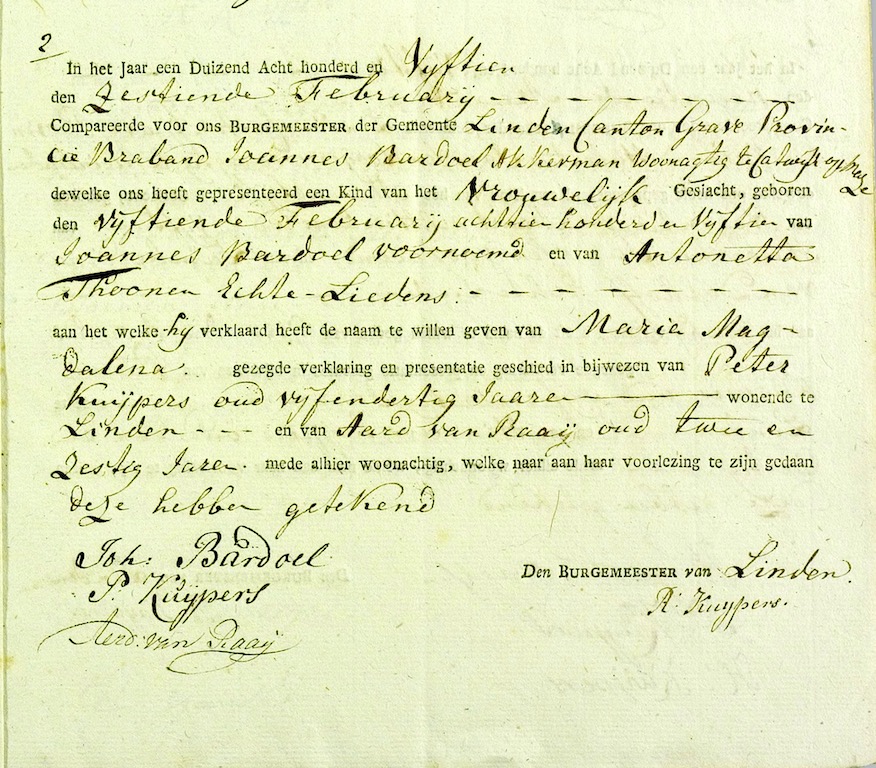 2
In het Jaar een Duizend Acht honderd en Vyftien
den Zestiende Februarij - - - - - -
Compareerde voor ons BURGEMEESTER der Gemeente Linden Canton Grave Provin-
cie Braband Joannes Bardoel Akkerman Woonagtig te Catwijk op
dewelke ons heeft gepresenteerd een Kind van het Vrouwelijk Geslacht, geboren
den Vyftiende Februarij achttien honderd en Vyftien van
Joannes Bardoel voornoemd en van Antonetta
Thoonen Echte-Liedens - - - - - - - -
aan het welke hy verklaard heeft de naam te willen geven van Maria Mag-
dalena. gezegde verklaring en presentatie geschied in bijwezen van Peter
Kuijpers oud vyfendertig Jaaren wonende te
Linden - - - en van Aard van Raaij oud twee en
Zestig Jaren. mede alhier woonachtig, welke naar aan haar voorlezing te zijn gedaan
deze hebben getekend
Joh: Bardoel
P. Kuijpers
Aerd: van Raaij
Den BURGEMEESTER van Linden.
Kuijpers.